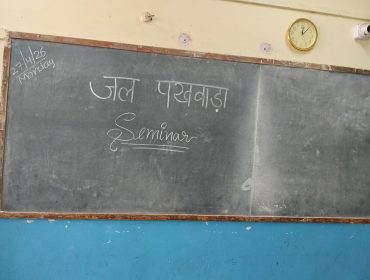 27/4/26
Monday
जल पखवाड़ा
Seminar